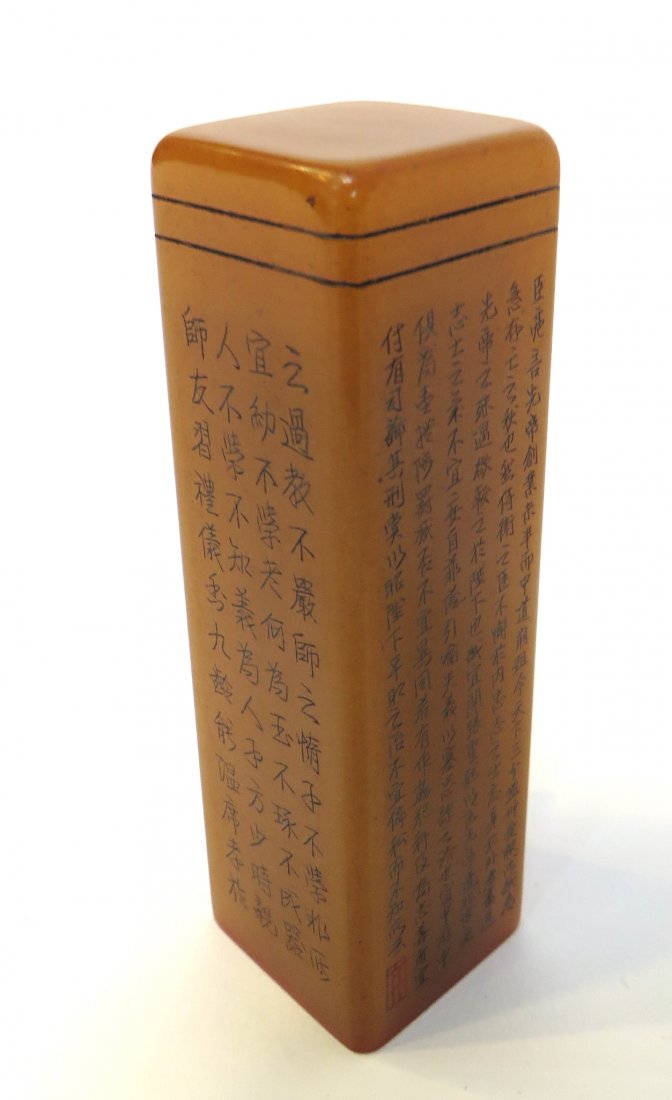 臣亮言先帝創業未半而中道崩殂今天下三分益州疲弊此誠危
急存亡之秋也然侍衛之臣不懈於內忠志之士忘身於外者蓋追
先帝之殊遇欲報之於陛下也誠宜開張聖聽以光先帝遺德
志士之氣不宜妄自菲薄引喻失義以塞忠諫之路也宮中府中
俱為壹體陟罰臧否不宜異同若有作姦犯科及為忠善者宜
付有司論其刑賞以昭陛下平明之治不宜偏私而不知所云
之過教不嚴師之惰子不學非所
宜幼不學老何為玉不琢不成器
人不學不知義為人子方少時親
師友習禮儀香九齡能溫席孝於